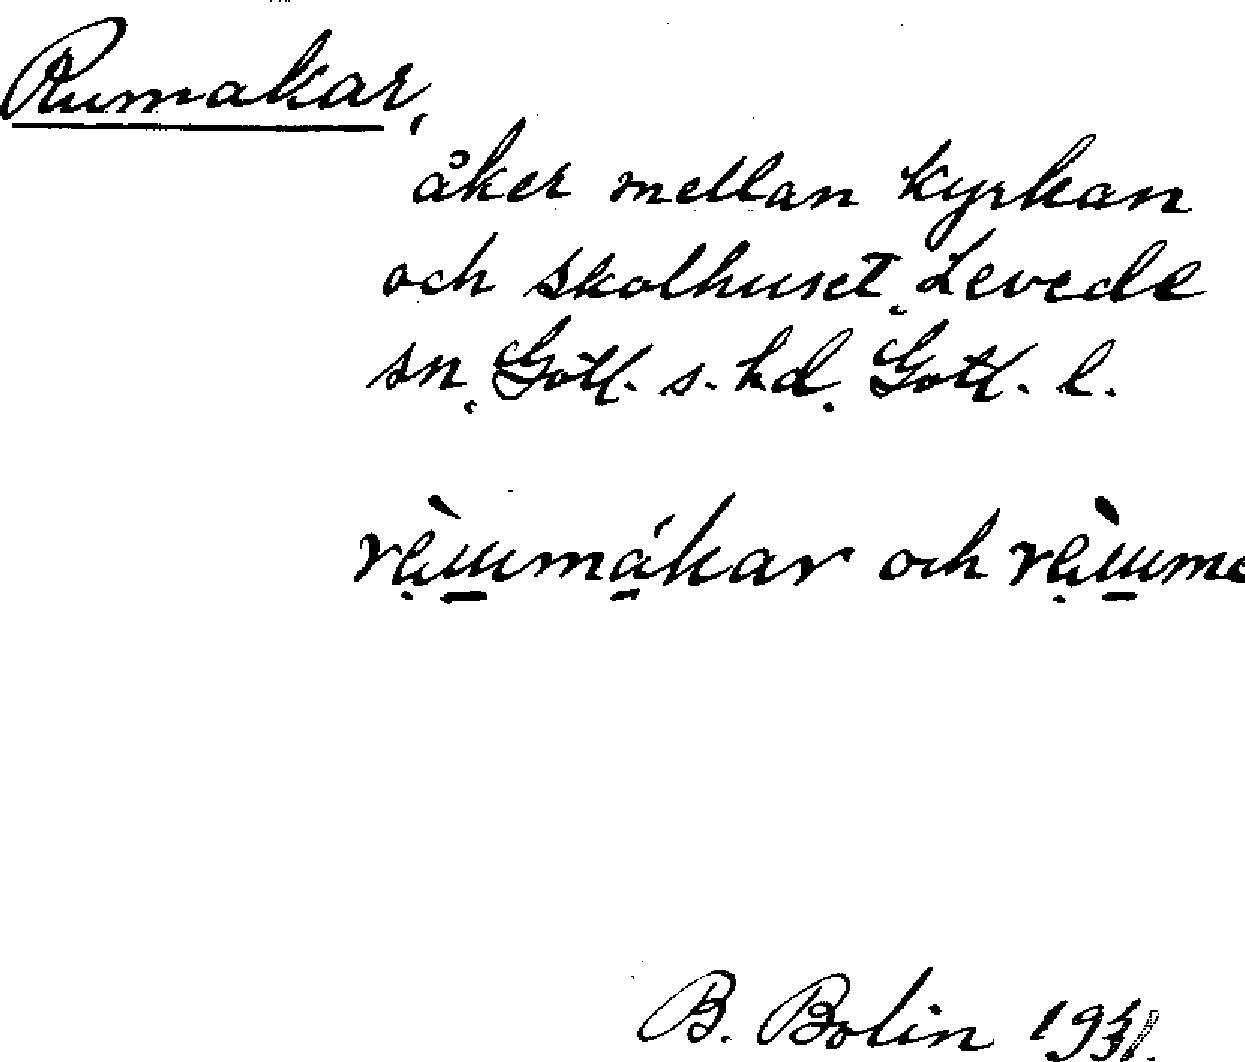 Rumakar,
åker mellan kyrkan
och skolhuset, Levede
sn, Gotl. s. hd, Gotl. l.
och
B. Bolin